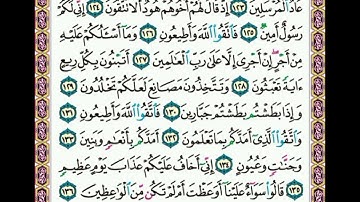 عَادٌ ٱلْمُرْسَلِينَ ١٢٣ إِذْ قَالَ لَهُمْ أَخُوهُمْ هُودٌ أَلَا تَتَّقُونَ ١٢٤ إِنِّي لَكُمْ
رَسُولٌ أَمِينٌ ١٢٥ فَٱتَّقُوا۟ ٱللَّهَ وَأَطِيعُونِ ١٢٦ وَمَآ أَسْـَٔلُكُمْ عَلَيْهِ
مِنْ أَجْرٍ إِنْ أَجْرِيَ إِلَّا عَلَىٰ رَبِّ ٱلْعَٰلَمِينَ ١٢٧ أَتَبْنُونَ بِكُلِّ رِيعٍ
ءَايَةً تَعْبَثُونَ ١٢٨ وَتَتَّخِذُونَ مَصَانِعَ لَعَلَّكُمْ تَخْلُدُونَ
١٢٩ وَإِذَا بَطَشْتُم بَطَشْتُمْ جَبَّارِينَ ١٣٠ فَٱتَّقُوا۟ ٱللَّهَ وَأَطِيعُونِ
١٣١ وَٱتَّقُوا۟ ٱلَّذِيٓ أَمَدَّكُم بِمَا تَعْلَمُونَ ١٣٢ أَمَدَّكُم بِأَنْعَٰمٍ وَبَنِينَ
١٣٣ وَجَنَّٰتٍ وَعُيُونٍ ١٣٤ إِنِّيٓ أَخَافُ عَلَيْكُمْ عَذَابَ يَوْمٍ عَظِيمٍ
١٣٥ قَالُوا۟ سَوَآءٌ عَلَيْنَآ أَوَعَظْتَ أَمْ لَمْ تَكُن مِّنَ ٱلْوَٰعِظِينَ ١٣٦